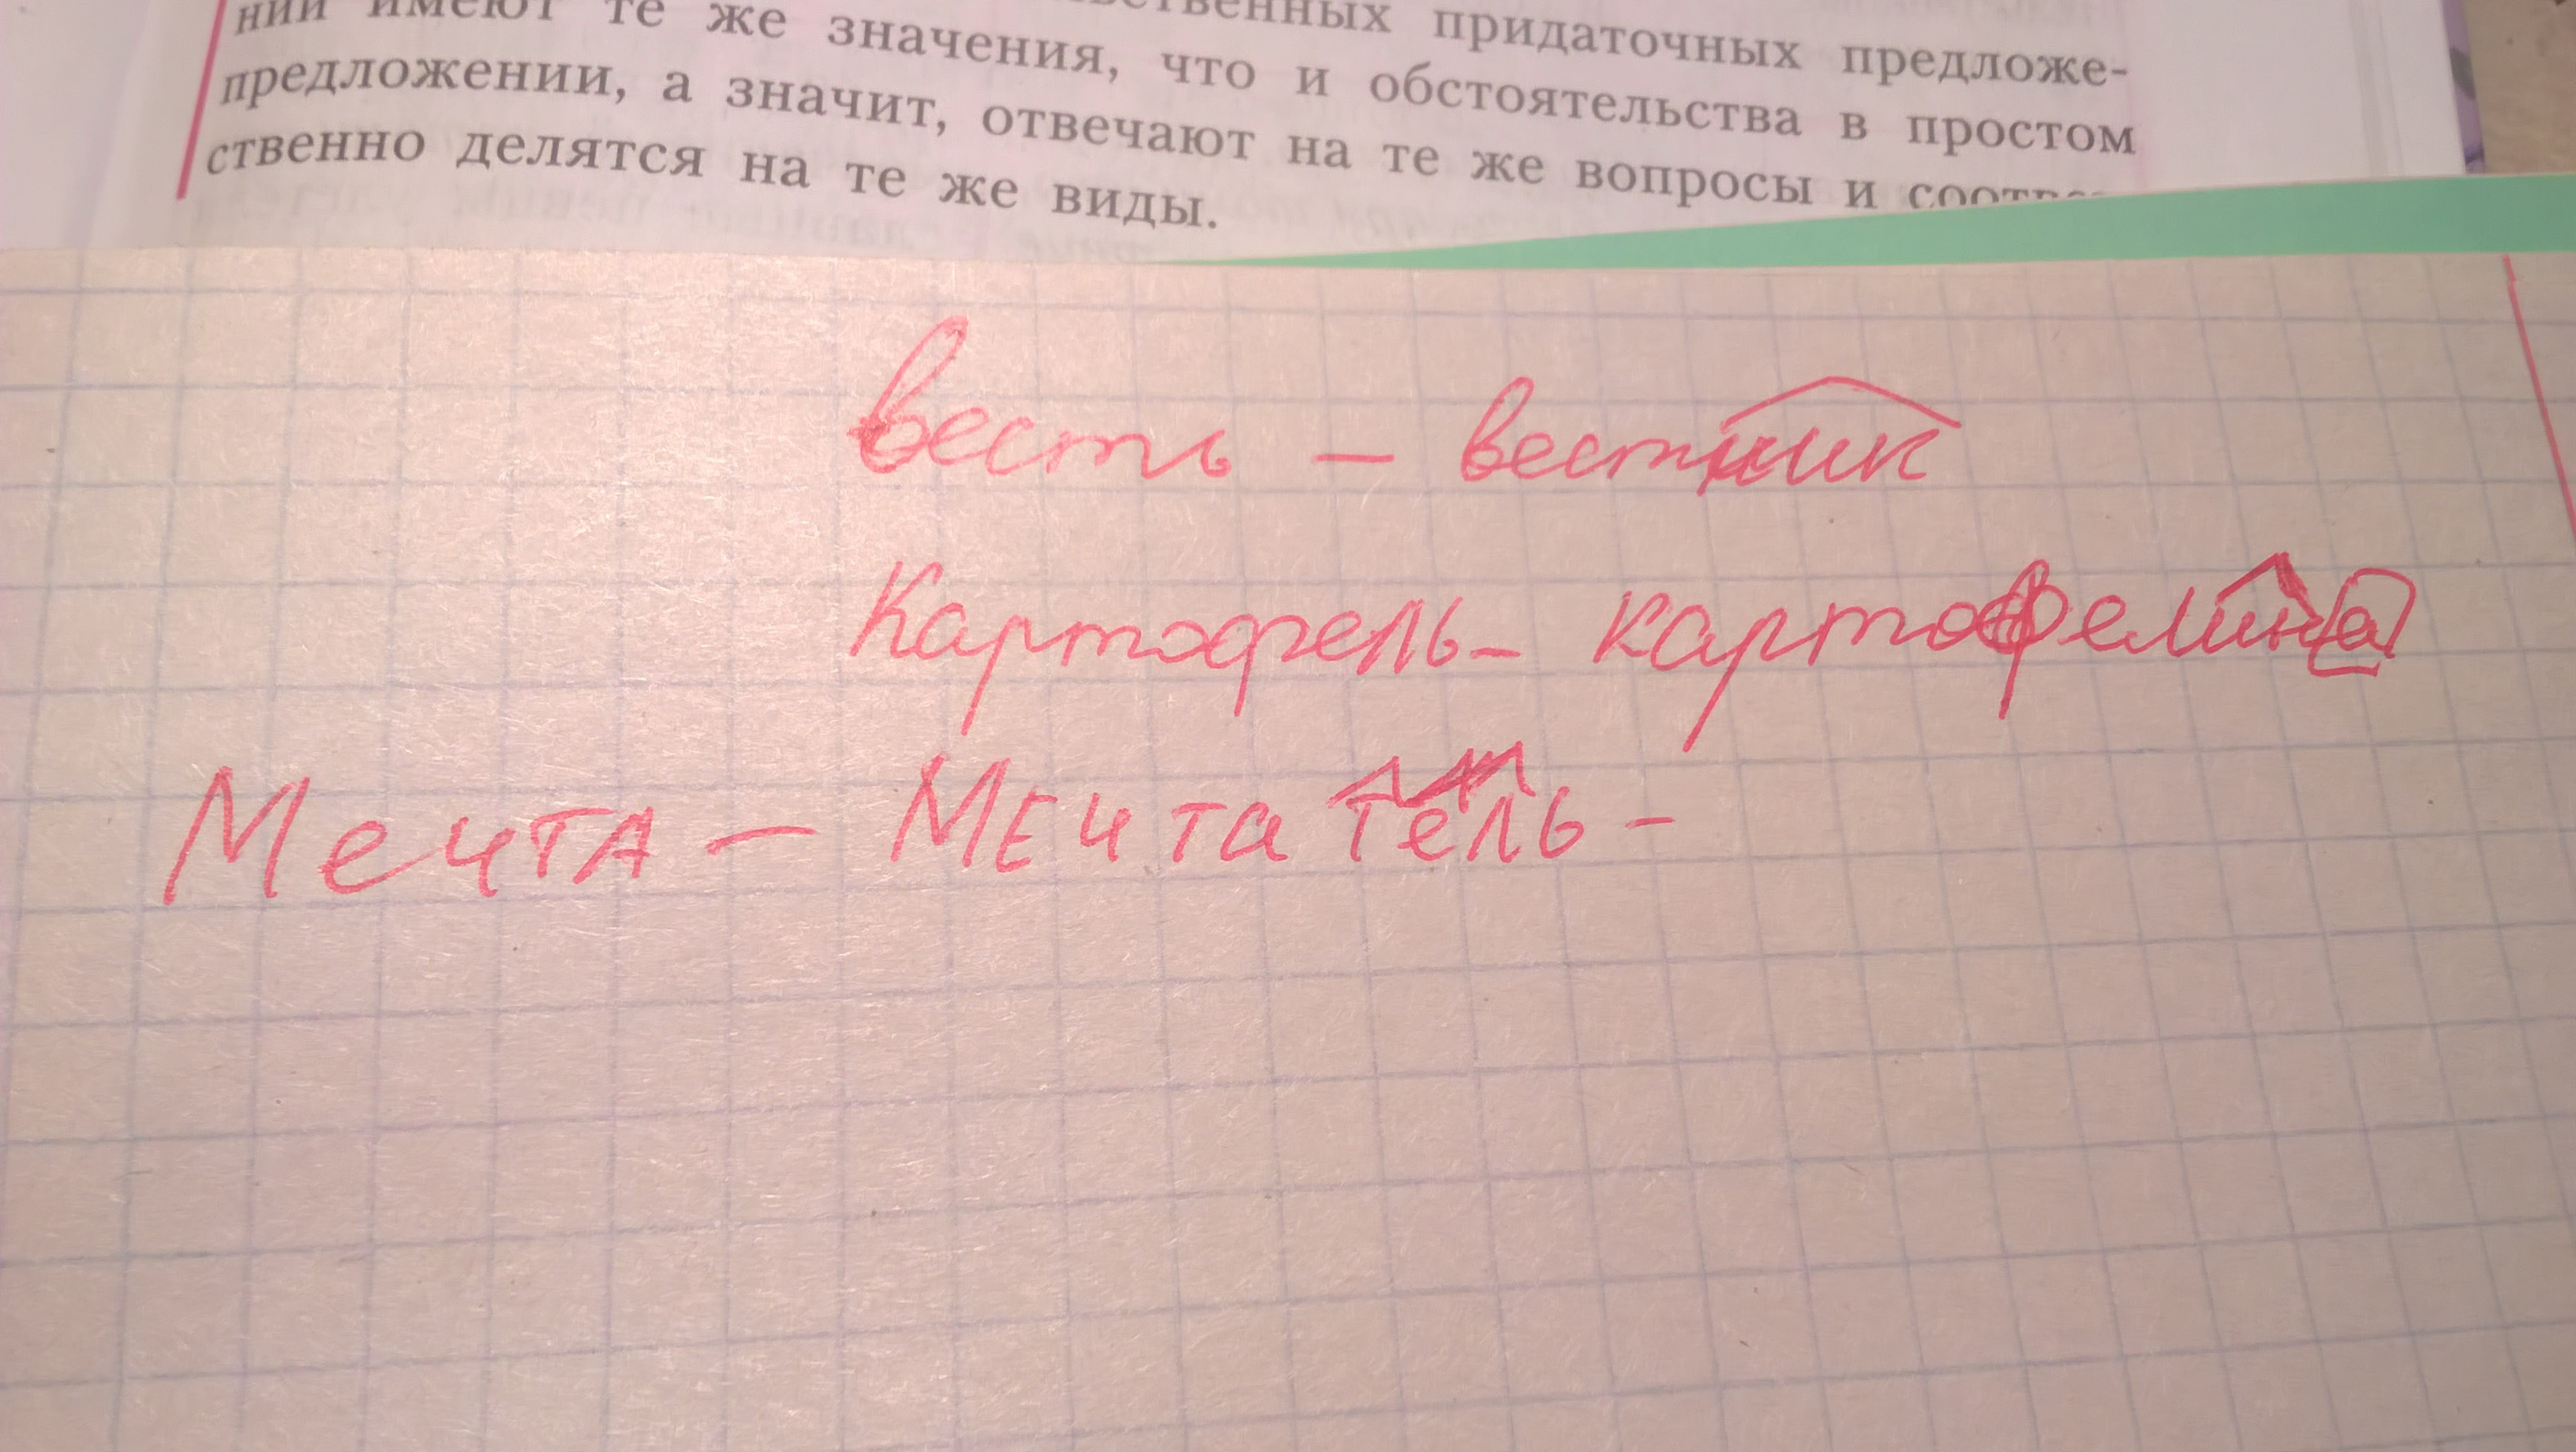 нии имеют те же значения, что и обстоятельства в простом
придаточных предложе-
предложении, а значит, отвечают на те же вопросы и
ственно делятся на те же виды.
весть – вестник
Картофель – картофелина
Мечта – Мечтатель –